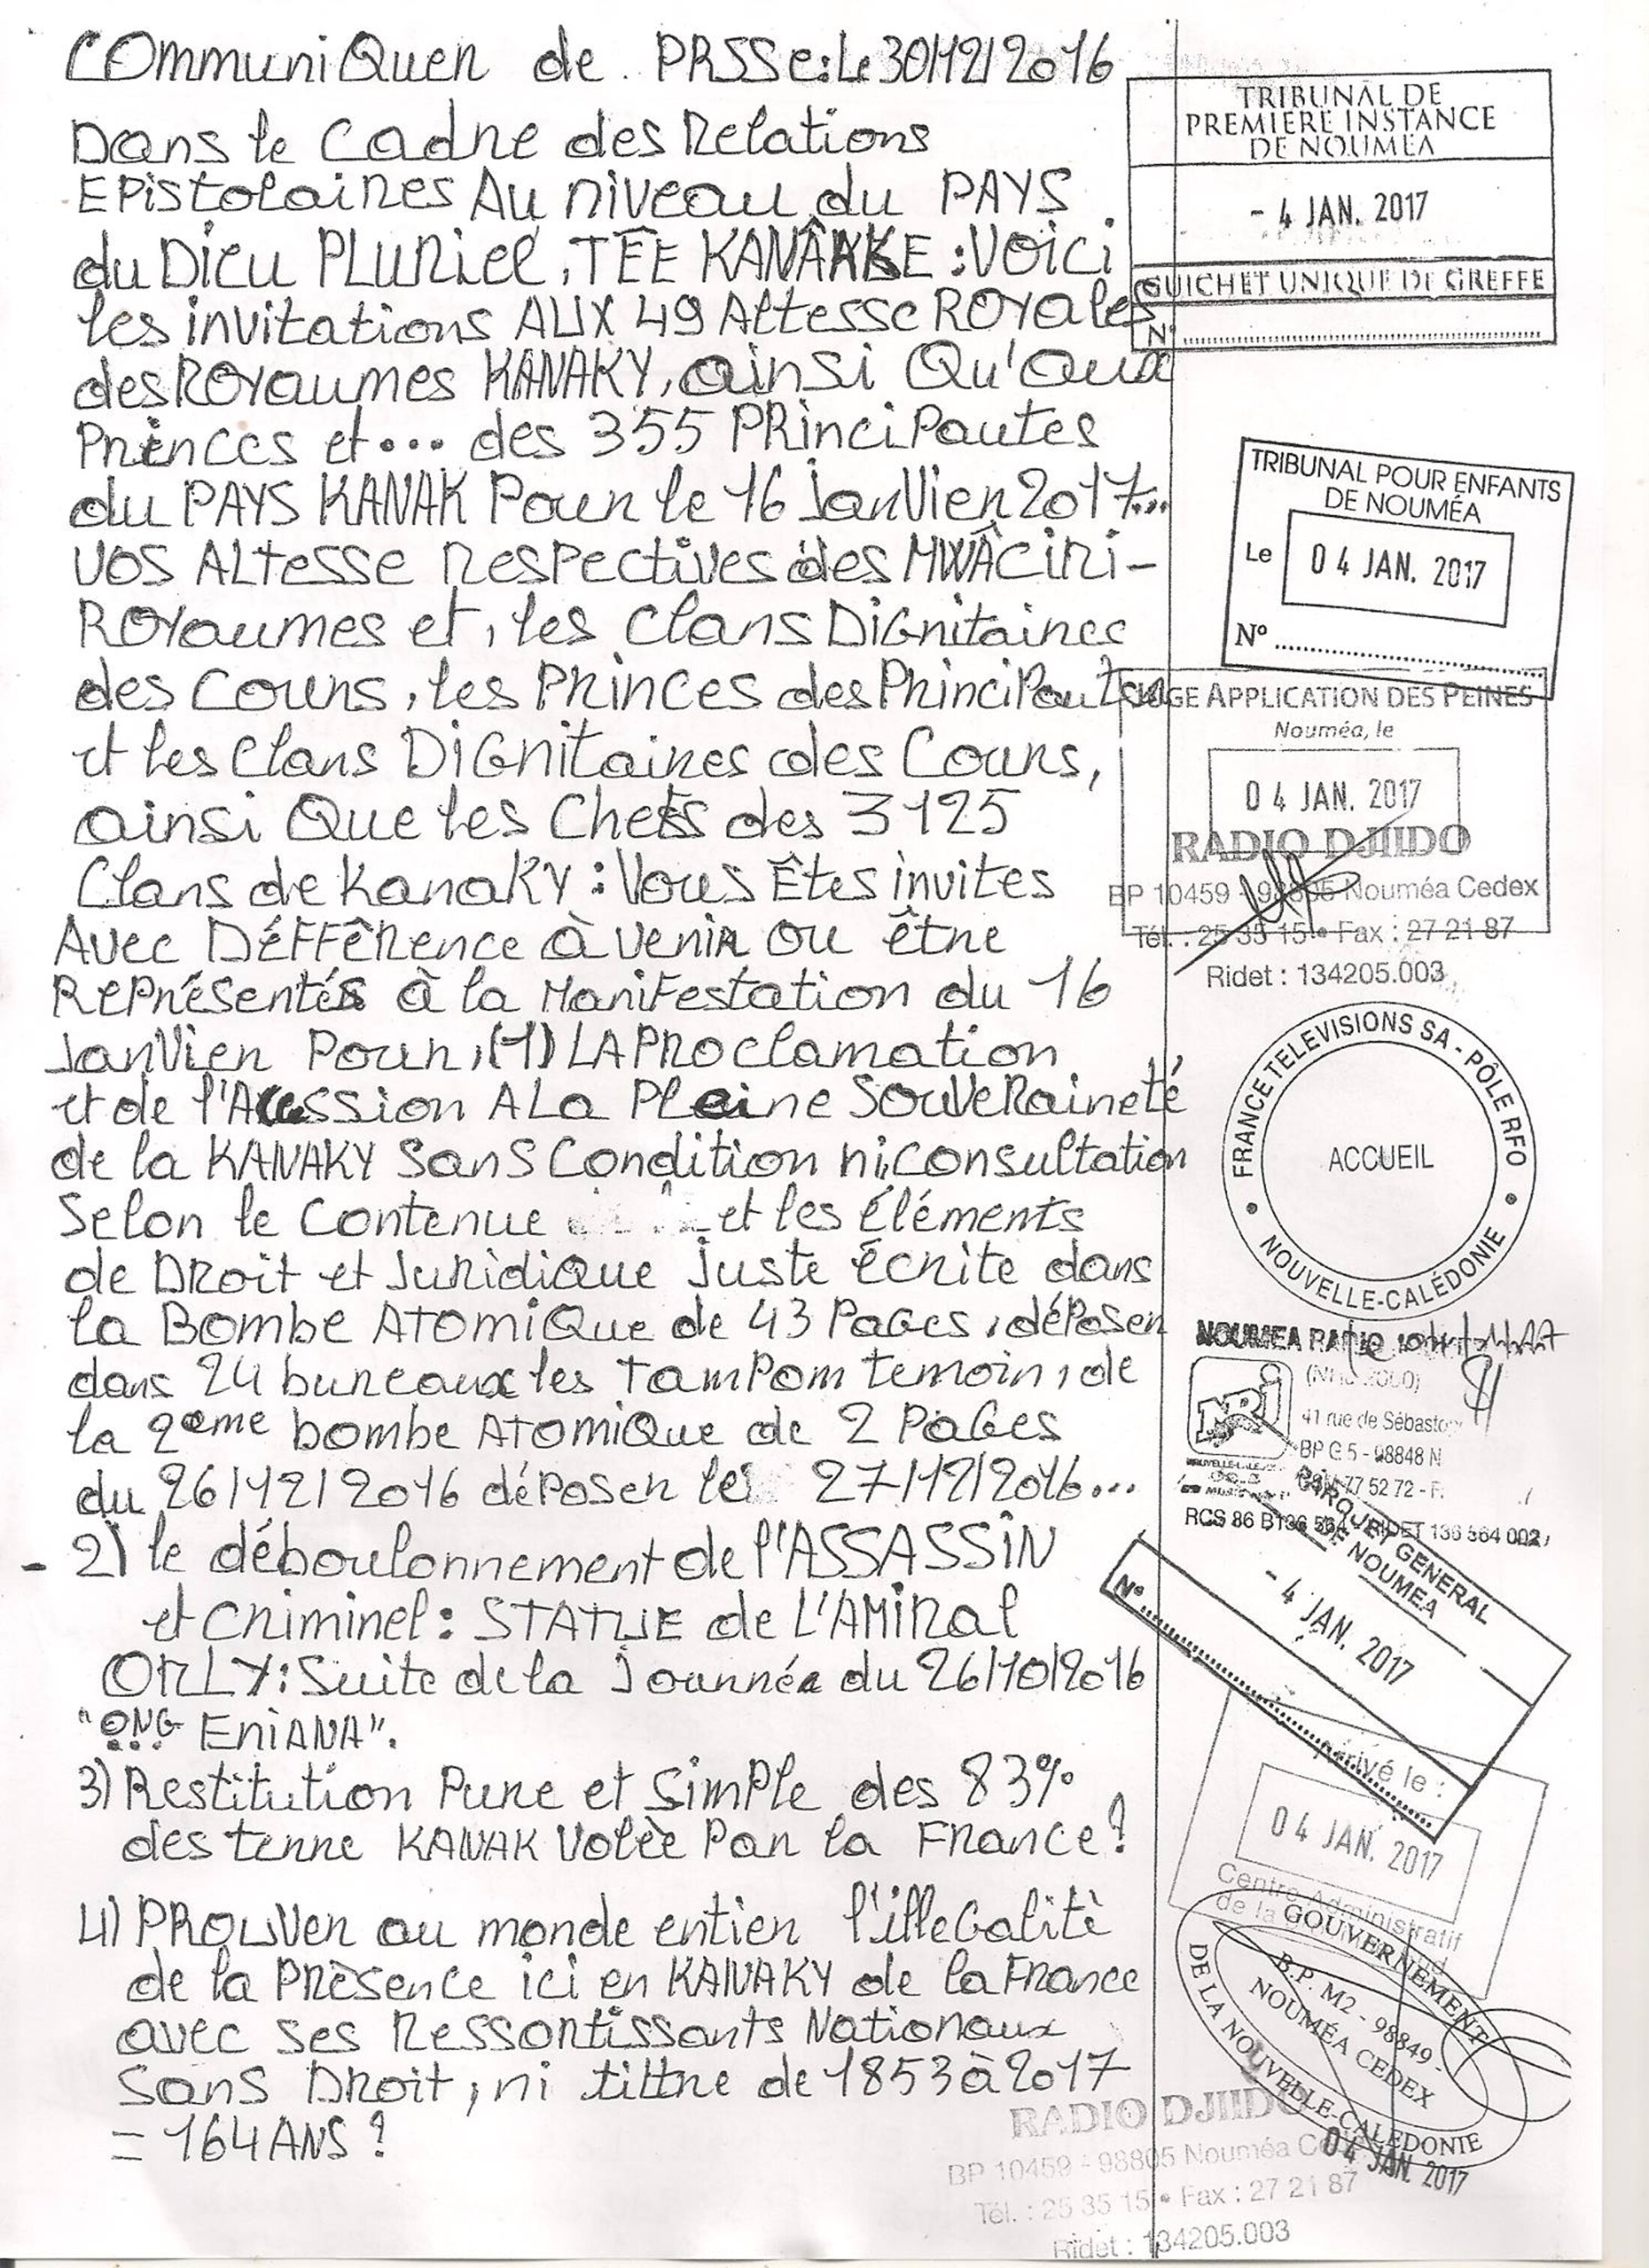 COmmuniQuer de PRSSe: Le 30/12/2016
Dans le Cadre des Relations
EPistolaires Au niveau du PAYS
du Dieu PLURiel, TÊE KANÂKE : VOici
les invitations AUX 49 Altesse ROYales
des ROYaumes KANAKY, ainsi Qu'aux
Princes et... des 355 PRinciPautes
du PAYS KANAK Pour le 16 JanVier 2017...
VOS ALtesse ResPectives des MWÂCiri-
ROYaumes et, les Clans DiGnitaires
des Cours, les Princes des PrinciPautes
et les Clans DiGnitaires des Cours,
ainsi Que les Chefs des 3125
Clans de KanaKY : Vous Êtes invites
Avec DÉFFÊrence à venir OU être
RePrésentés à la ManiFestation du 16
JanVier Pour, (1) LA PROclamation
et de l'Acession A La Pleine SOUVeRaineté
de la KANAKY Sans Condition ni, consultation
Selon le Contenue et les éléments
de DRoit et Juridique Juste Écrite dans
la Bombe ATomiQue de 43 PaGes, déPoser
dans 24 bureaux les TamPom temoin, de
la 2eme bombe ATomiQue de 2 PaGes
du 26/12/2016 déPoser le 27/12/2016...
- 2) le déboulonnement de l'ASSASSiN
et Criminel : STATUE de L'AMiRal
ORLY : Suite de la Journnée du 26/10/2016
"ONG EniANA".
3) Restitution Pure et Simple des 83%
des terre KANAK Volèe Par la France ?
4) PROUVer au monde entier l'illeGalitè
de la Prèsence ici en KANAKY de la France
avec ses Ressortissants Nationaux
Sans Droit, ni tittre de 1853 à 2017
= 164 ANS ?
TRIBUNAL DE
PREMIERE INSTANCE
DE NOUMEA
- 4 JAN. 2017
GUICHET UNIQUE DE GREFFE
N°
TRIBUNAL POUR ENFANTS
DE NOUMÉA
Le 04 JAN. 2017
N°
JUGE APPLICATION DES PEINES
Nouméa, le
04 JAN. 2017
RADIO DJIIDO
BP 10459 - 98805 Nouméa Cedex
Tél. : 25 35 15 • Fax : 27 21 87
Ridet : 134205.003
FRANCE TELEVISIONS SA - PÔLE RFO
ACCUEIL
NOUVELLE-CALÉDONIE
NOUMEA RADIO
NRJ
41 rue de Sébasto
BP G 5 - 98848 N
77 52 72 - F.
RCS 86 B136 564 - RIDET 136 564 002
PARQUET GENERAL
DE NOUMEA
- 4 JAN. 2017
N°
Arrivé le :
04 JAN. 2017
Centre Administratif
de la
GOUVERNEMENT
B.P. M2 - 98849 -
NOUMÉA CEDEX
DE LA NOUVELLE-CALEDONIE
04 JAN. 2017
RADIO DJIIDO
BP 10459 - 98805 Nouméa Cedex
Tél. : 25 35 15 • Fax : 27 21 87
Ridet : 134205.003